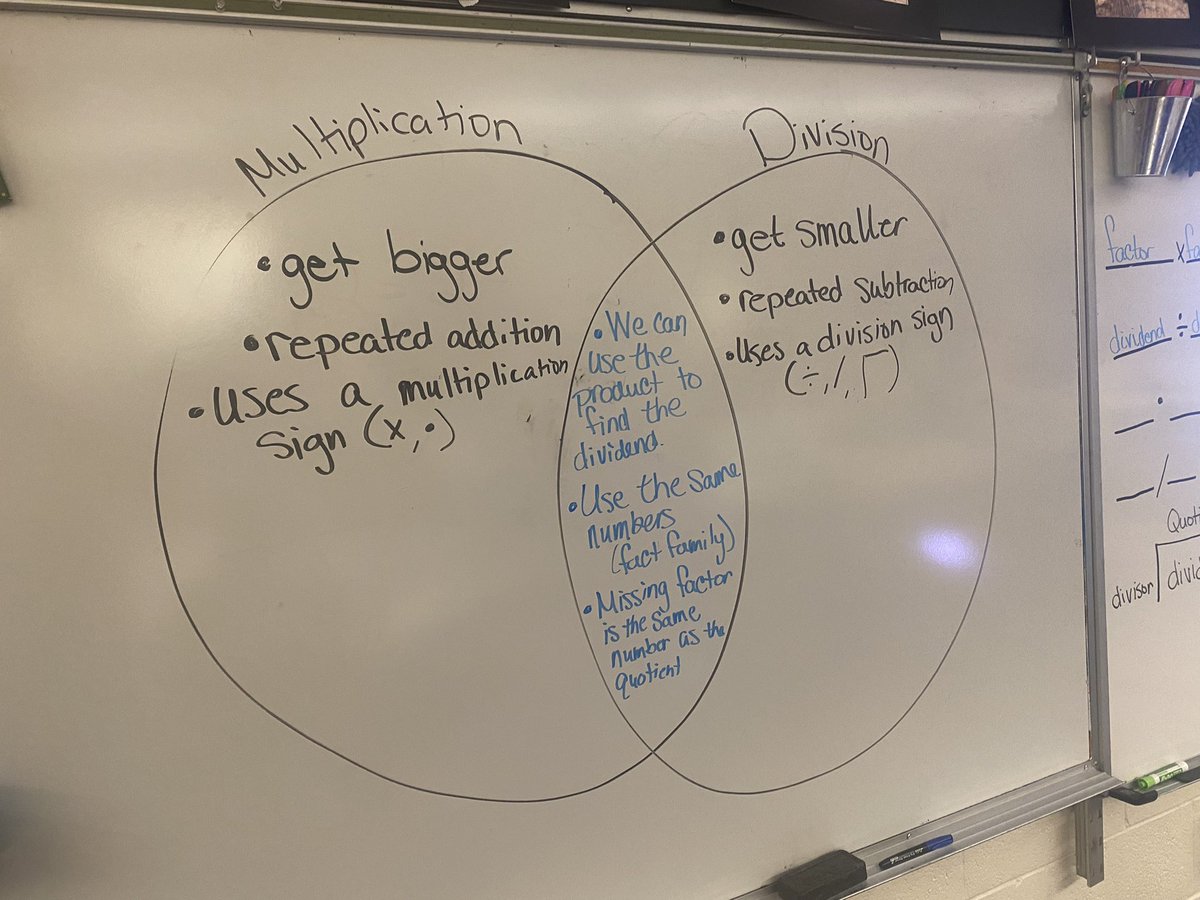 Multiplication
• get bigger
• repeated addition
• Uses a multiplication
sign (x, •)
• We can
use the
product to
find the
dividend.
• Use the same
numbers
(fact family)
• Missing factor
is the same
number as the
quotient
Division
• get smaller
• repeated subtraction
• Uses a division sign
(÷, /, ⟌)
factor x fa
dividend ÷ d
__ • __
__ / __
Quoti
divisor divid